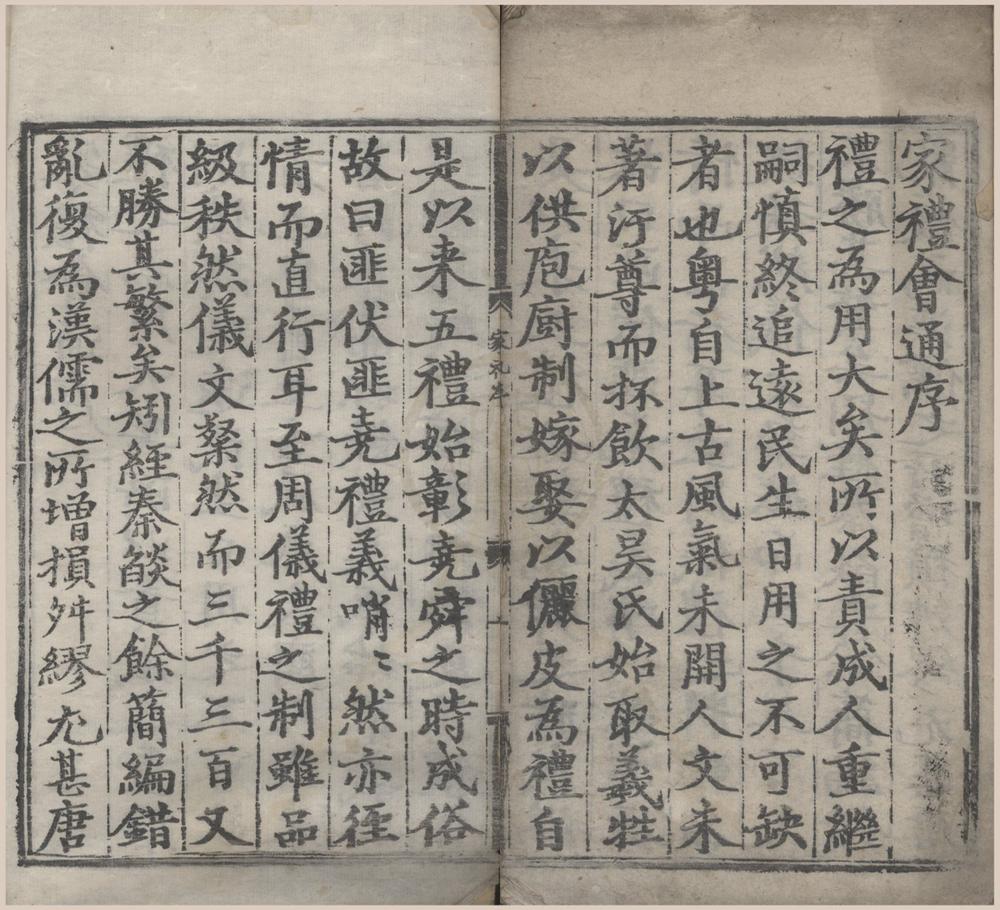 家禮會通序
禮之為用大矣所以責成人重繼
嗣慎終追遠民生日用之不可缺
者也粤自上古風氣未開人文未
著汙尊而抔飲太昊氏始取羲牲
以供庖厨制嫁娶以儷皮為禮自
家礼序
上
是以来五禮始彰堯舜之時成俗
故曰匪伏匪堯禮義哨〻然亦徑
情而直行耳至周儀禮之制雖品
級秩然儀文粲然而三千三百又
不勝其繁矣矧經秦燄之餘簡編錯
亂復為漢儒之所增損舛繆尤甚唐